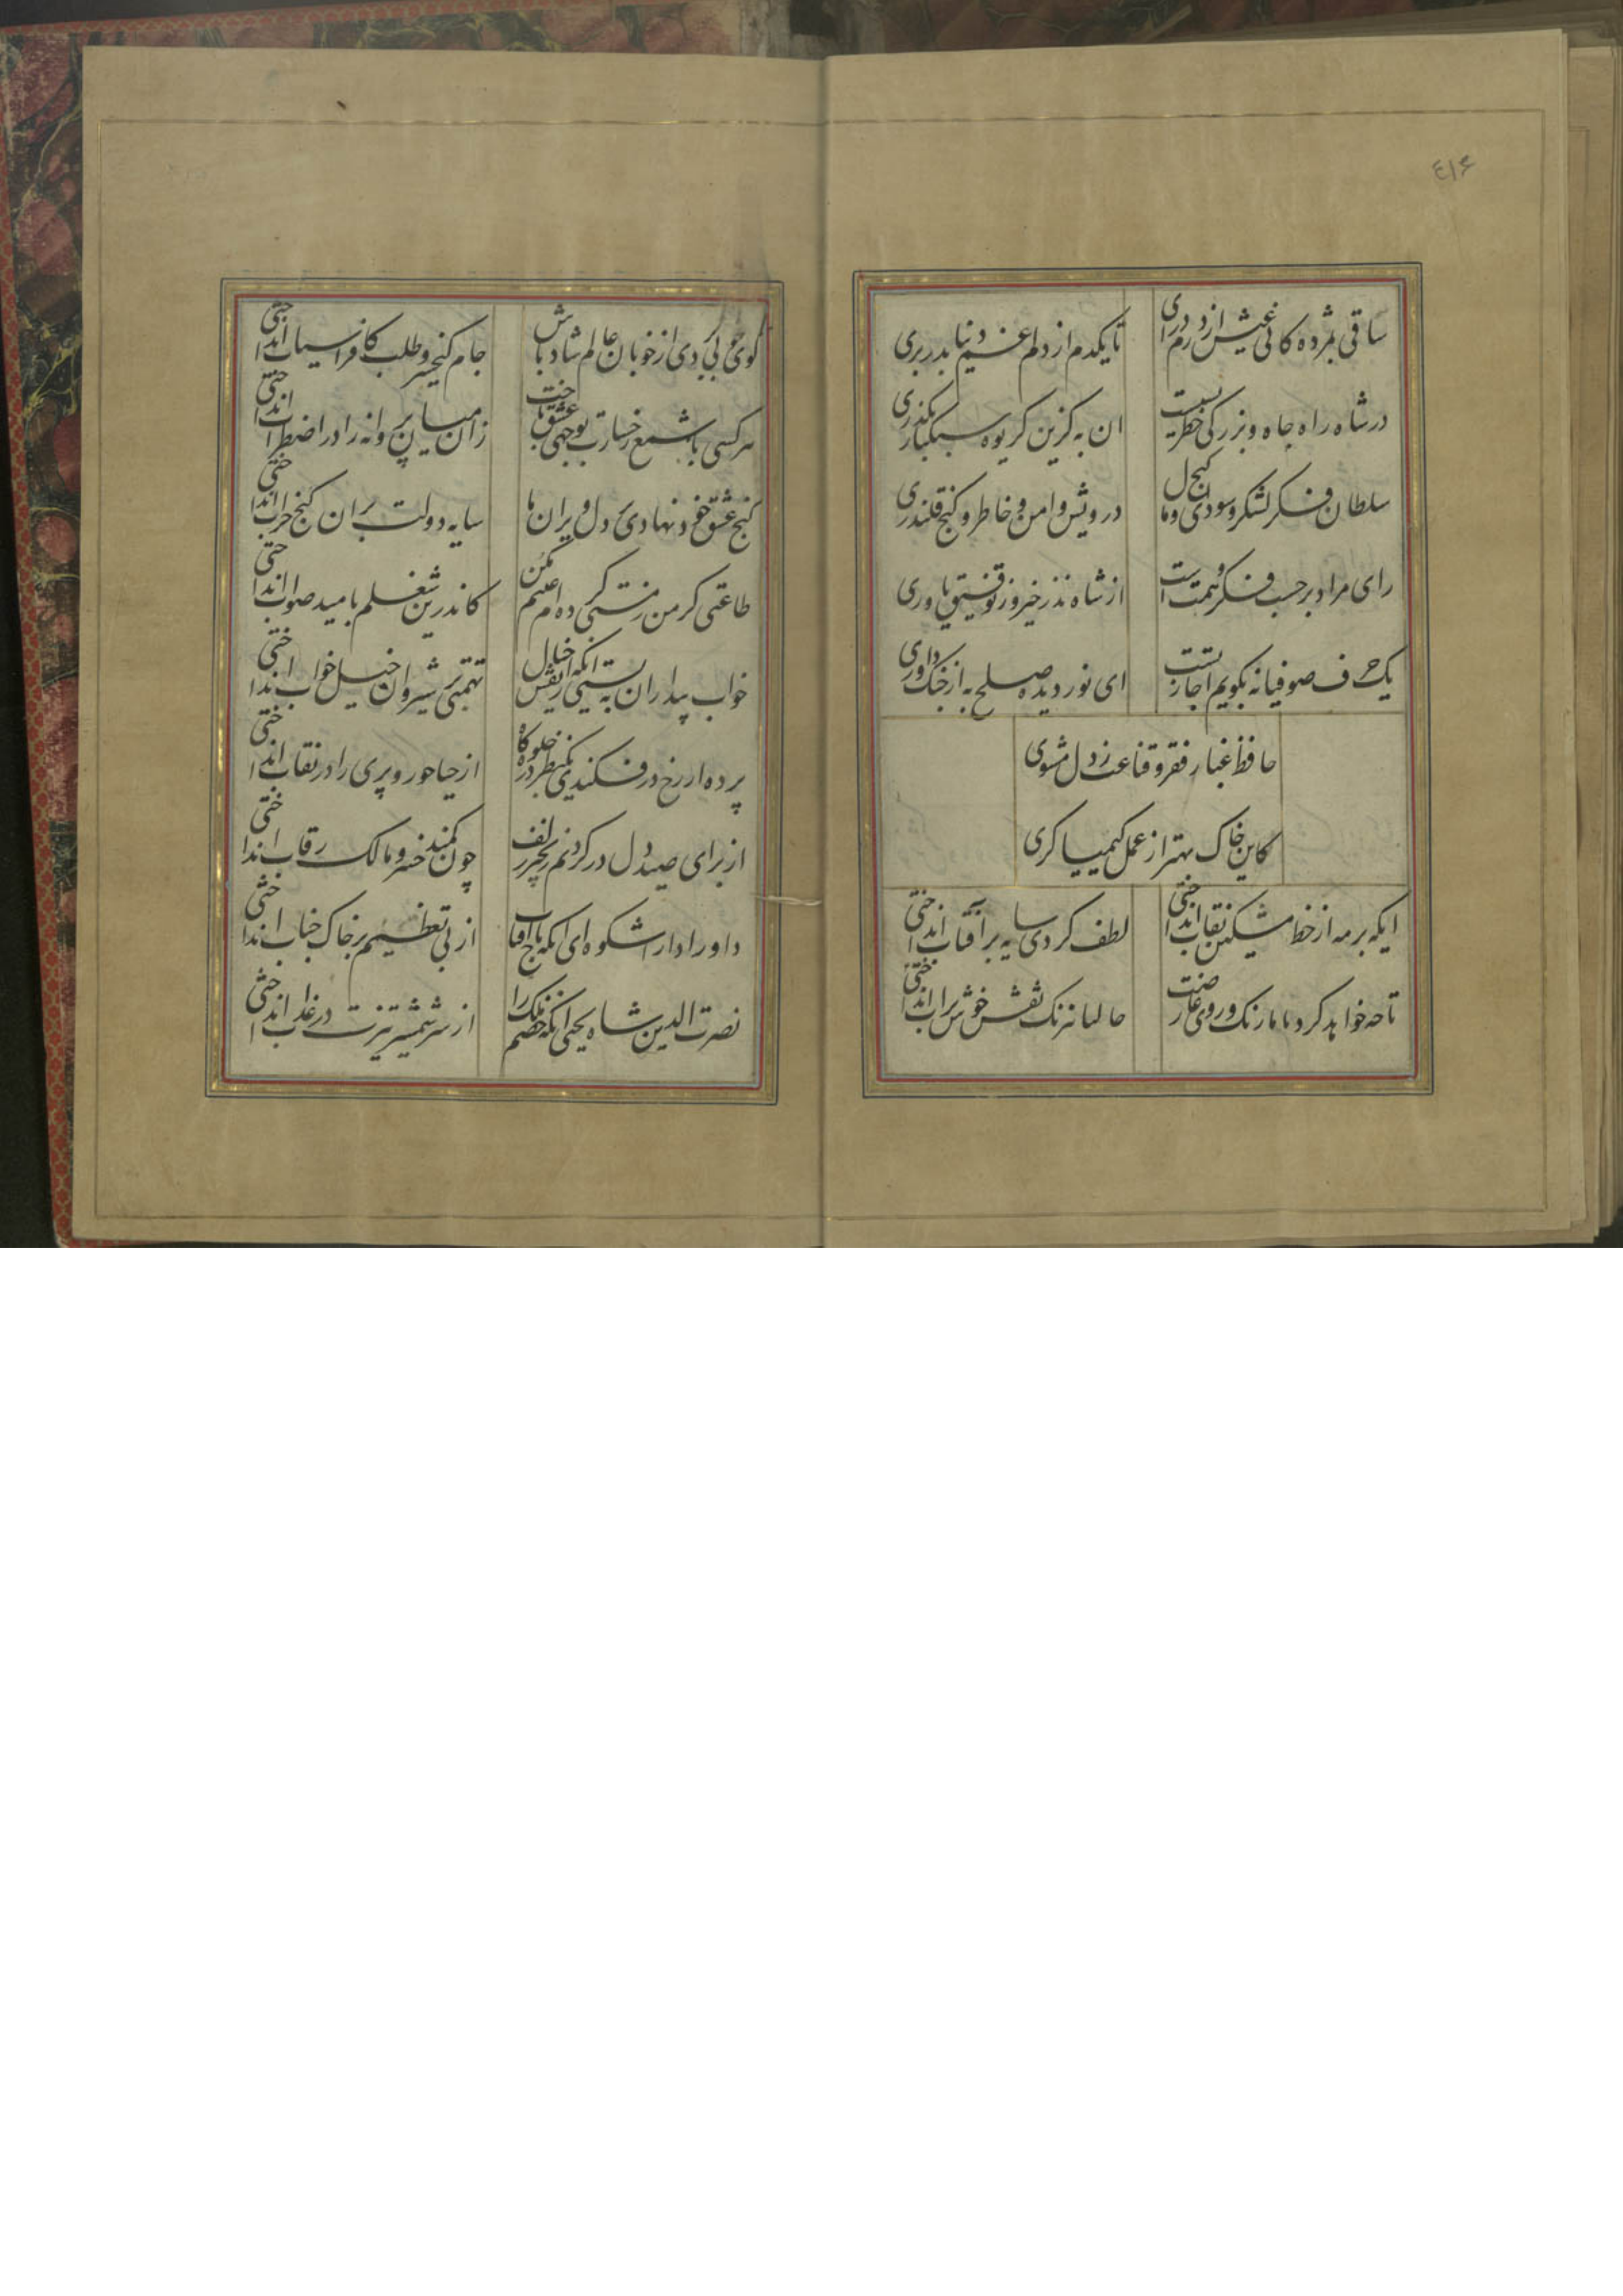 ٤١۶
ساقی بمژده کانی عیش از درم درای
تا یکدم از دلم غم دنیا بدر بری
در شاه راه جاه و بزرکی خطر بسیست
ان به کزین کریوه سبکبار بکذری
سلطان و فکر لشکر و سودای کنج و مال
درویش و امن و خاطر و کنج قلندری
رای مراد بر حسب فکر و همت است
از شاه نذر خیر و ز توفیق یاوری
یک حرف صوفیانه بکویم اجازتست
ای نور دیده صلح به از جنک داوری
حافظ غبار فقر و قناعت ز دل مشوی
کاین خاک بهتر از عمل کیمیا کری
ایکه بر مه از خط مشکین نقاب انداختی
لطف کردی سایه بر آفتاب انداختی
تا چه خواهد کرد با ما رنک و روی عارضت
حالیا نیرنک نقش خوش بر اب انداختی
کوی خوبی بردی از خوبان عالم شاد باش
جام کیخسرو طلب کافراسیاب انداختی
هر کسی با شمع رخسارت بوجهی عشق باخت
زان میان پروانه را در اضطراب انداختی
کنج عشق خود نهادی بر دل ویران ما
سایه دولت بر ان کنج خراب انداختی
طاعتی کر من ز مستی کرده ام عیبم مکن
کاندرین شغلم بامید صواب انداختی
خواب بیداران به بستی انکه از نقش خیال
تهمتی بر شبروان خیل خواب انداختی
پرده از رخ در فکندی یکنظر در جلوه کاه
از حیا حور و پری را در نقاب انداختی
از برای صید دل در کردنم زنجیر زلف
چون کمند خسرو مالک رقاب انداختی
داور دارا شکوه ای انکه تاج افتاب
از پی تعظیم بر خاک جناب انداختی
نصرت الدین شاه یحیی انکه خصم ملک را
از سر شمشیر تیزت در عذاب انداختی